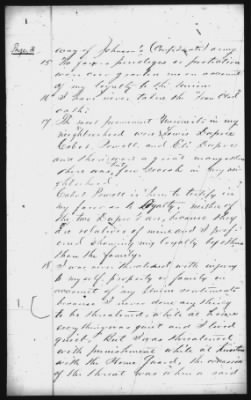 Page 3
way of Johnson's (Confederate) army
15 No favors privileges or protection
were ever granted me on account
of my loyalty to the Union
16 I have never taken the Iron Clad
oath.
17 The most prominent Unionists in my
neighborhood were Lewis Dupree
Powell and Eli Dupree
and there were a great many others
there was, few in my
neighborhood.
Powell is here to testify in
my favor as to Loyalty; neither of
the two Dupree's are, because they
are relatives of mine and I prefer
showing my loyalty by others
than the family.
18 I was never threatened with injury
to myself, property or family on
account of my Union sentiments
because I never done any thing
to be threatened, while at home
every thing was quiet and I lived
quiet. But I was threatened
with punishment while at
with the Home Guard, the occasion
of the threat was when I said